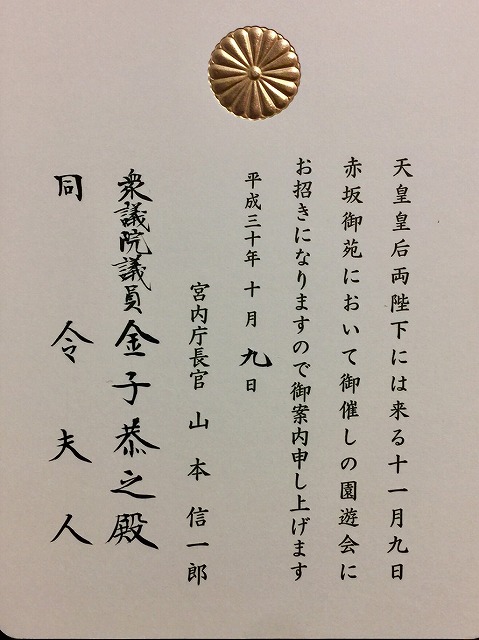 天皇皇后両陛下には来る十一月九日
赤坂御苑において御催しの園遊会に
お招きになりますので御案内申し上げます
平成三十年十月九日
宮内庁長官 山本信一郎
衆議院議員 金子恭之殿
同 令夫人